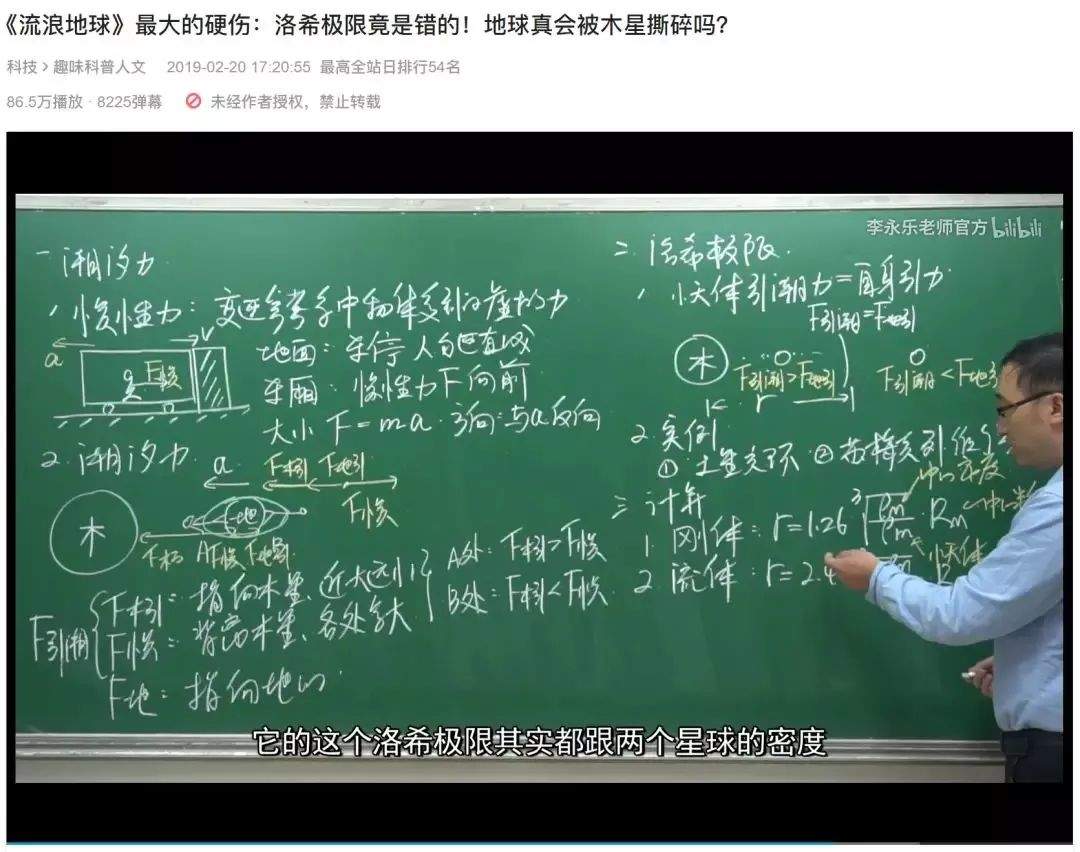 《流浪地球》最大的硬伤：洛希极限竟是错的！地球真会被木星撕碎吗？
科技 > 趣味科普人文 2019-02-20 17:20:55 最高全站日排行54名
86.5万播放 · 8225弹幕 未经作者授权，禁止转载
李永乐老师官方 bilibili
一 潮汐力
1 惯性力：变速参考系中物体受到的虚拟力
a
v
F惯
地面：车停 人
车厢：惯性力F向前
大小 F=ma 方向：与a反向
2. 潮汐力
a
F木引 F地引
F惯
木
地
F引潮
F木引：指向木星、近大远小
F惯：背离木星、各处等大
F地：指向地心
A处：F木引>F惯
B处：F木引<F惯
二 洛希极限
1 小天体引潮力=自身引力
F引潮=F地引
木
F引潮>F地引
F引潮<F地引
r
2. 实例
① 土星光环 ②
三 计算
1. 刚体：r=1.26 ³√ρM/ρm · RM
2. 流体：r=2.4
它的这个洛希极限其实都跟两个星球的密度